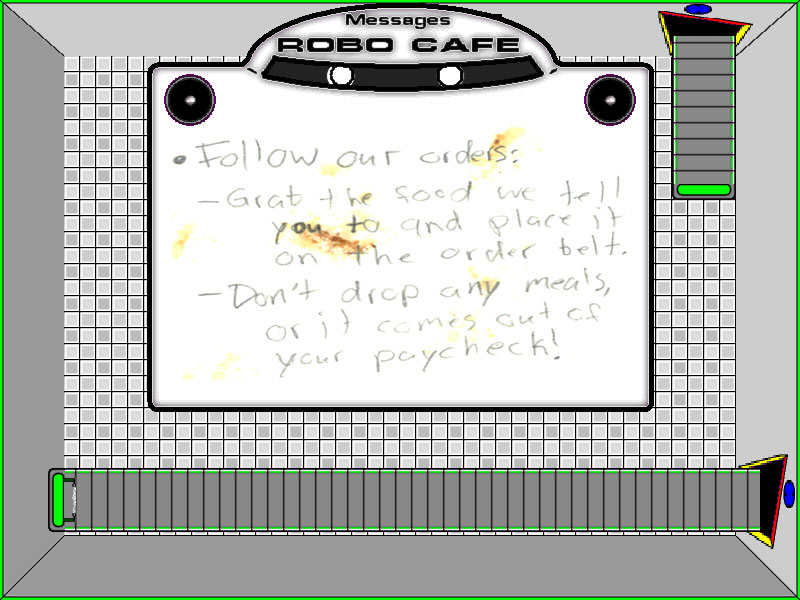 Messages
ROBO CAFE
• Follow our orders:
– Grab the food we tell
you to and place it
on the order belt.
– Don't drop any meals,
or it comes out of
your paycheck!